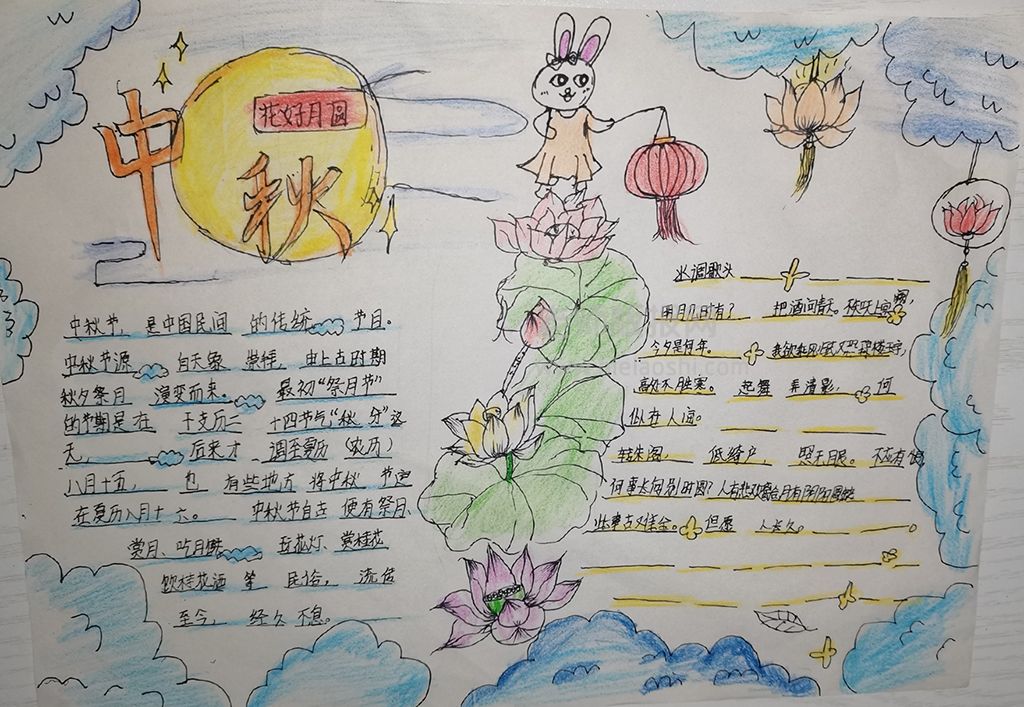 中秋
花好月圆
中秋节，是中国民间 的传统 节目。
中秋节源 自天象 崇拜，由上古时期
秋夕祭月 演变而来。 最初“祭月节”
的节期是在 干支历二 十四节气“秋 分”这
天， 后来才 调至夏历（农历）
八月十五， 也 有些地方 将中秋 节定
在夏历八月十 六。 中秋节自古 便有祭月、
赏月、吃月饼 玩花灯、赏桂花
饮桂花酒 等 民俗， 流传
至今， 经久 不息。
水调歌头
明月几时有？ 把酒问青天。不知天上宫阙，
今夕是何年。 我欲乘风归去又恐琼楼玉宇，
高处不胜寒。 起舞 弄清影， 何
似在人间。
转朱阁， 低绮户， 照无眠。 不应有恨
何事长向别时圆？人有悲欢离合月有阴晴圆缺
此事古难全。 但愿 人长久。